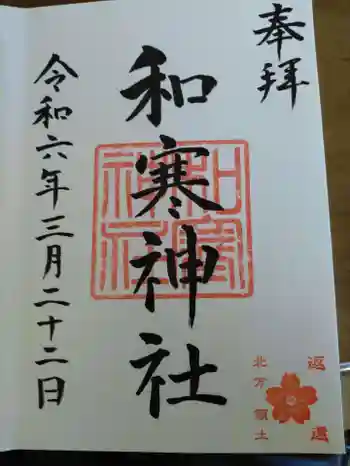 奉拝
和寒神社
令和六年三月二十二日
和寒神社
返還
北方領土